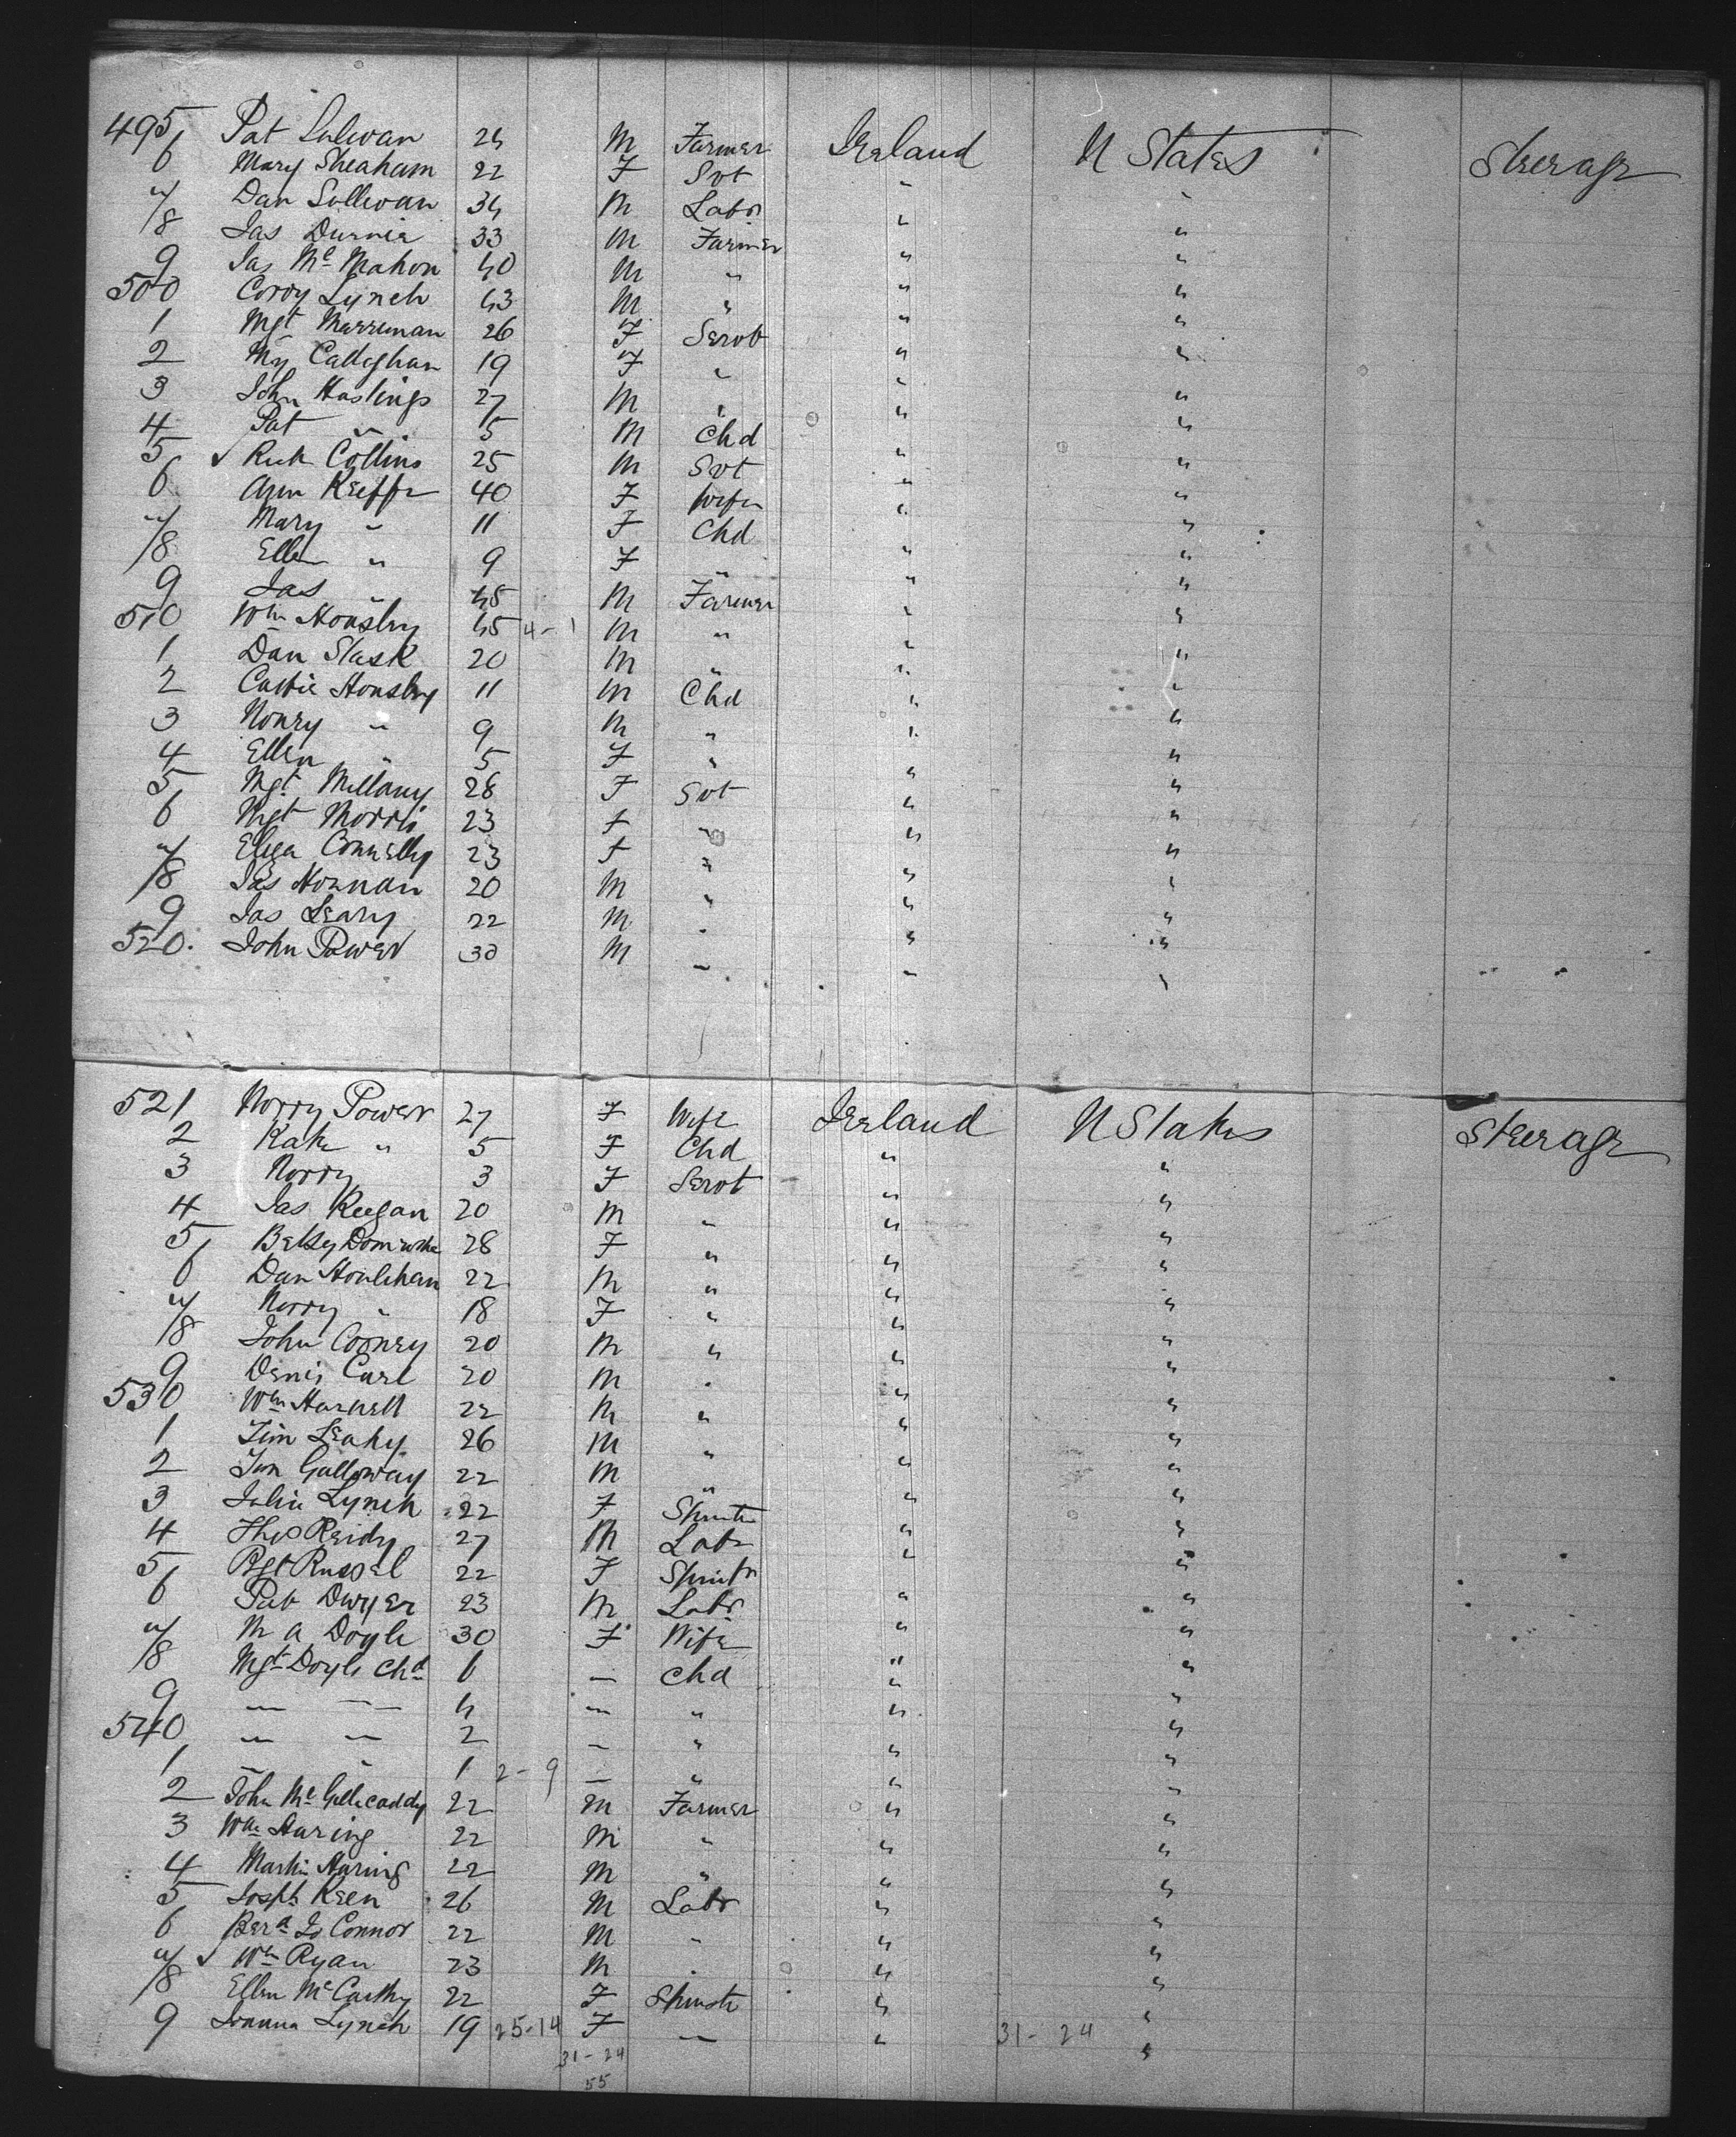 495 Pat Sulivan 24 M Farmer Ireland U States Steerage
6 Mary Sheaham 22 F Svt " "
7 Dan Sullivan 34 M Labr " "
8 Jas Durnie 33 M Farmer " "
9 Jas Mc Mahon 40 M " " "
500 Corry Lynch 43 M " " "
1 Mgt Merriman 26 F Servt " "
2 My Callaghan 19 F " " "
3 John Hastings 27 M " " "
4 Pat " 5 M Chd " "
5 ✓ Rich Collins 25 M Svt " "
6 Ann Keeffe 40 F Wife " "
7 Mary " 11 F Chd " "
8 Ellen " 9 F " " "
9 Jas " 45 M Farmer " "
510 Wm Housley 45 4-1 M " " "
1 Dan Slask 20 M " " "
2 Housley 11 M Chd " "
3 Nonry " 9 M " " "
4 Ellen " 5 F " " "
5 Mgt Mellany 28 F Svt " "
6 Mgt Morris 23 F " " "
7 Eliza Connelly 23 F " " "
8 Jas Noonan 20 M " " "
9 Jas Leary 22 M " " "
520 John Power 30 M " " "
521 Norry Power 27 F Wife Ireland U States Steerage
2 Kate " 5 F Chd " "
3 Norry 3 F Servt " "
4 Jas Keegan 20 M " " "
5 Betsy 28 F " " "
6 Dan Houlihan 22 M " " "
7 Norry " 18 F " " "
8 John Cooney 20 M " " "
9 Denis Carl 20 M " " "
530 Wm Harnell 22 M " " "
1 Tim Leahy 26 M " " "
2 Tim Galloway 22 M " " "
3 Julia Lynch 22 F Spinster " "
4 Thos Reidy 27 M Labr " "
5 Bgt Russel 22 F Spinstr " "
6 Pat Dwyer 23 M Labr " "
7 M A Doyle 30 F Wife " "
8 Mgt Doyle Chd 6 — Chd " "
9 — — 4 — " " "
540 — — 2 — " " "
1 — " 1 2-9 — " " "
2 John Mc Gillicaddy 22 M Farmer " "
3 Wm Haring 22 M " " "
4 Martin Haring 22 M " " "
5 Josph Keen 26 M Labr " "
6 Connor 22 M " " "
7 ✓ Wm Ryan 23 M " " "
8 Ellen McCarthy 22 F Spinstr " "
9 Joanna Lynch 19 25-14 F — " 31-24 "
31-24
55